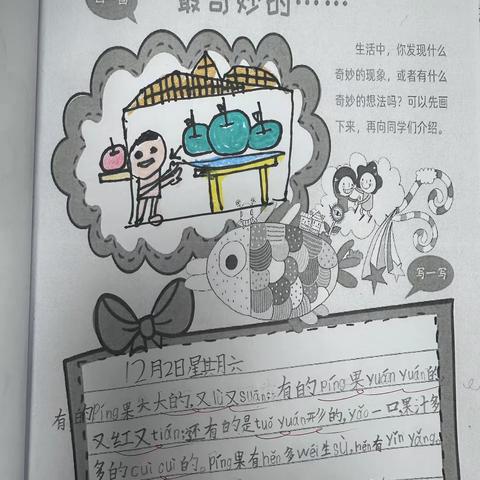 最奇妙的……
生活中,你发现什
奇妙的现象,或者有什
奇妙的想法吗?可以先画
下来,再向同学们介绍。
写一写
12月2日星其月六
有的píng果大大的,又lǜ又suān;有的píng果yuán yuán的,
又红又tián;还有的是tuǒ yuán形的,yǎo一口果汁多
多的cuì cuì的。píng果有hěn多wéi生sù,hěn有yíng yǎng,